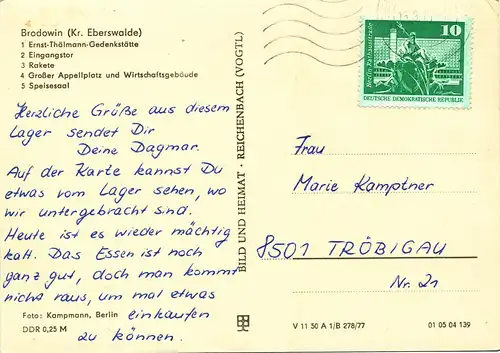 Brodowin (Kr. Eberswalde)
1 Ernst-Thälmann-Gedenkstätte
2 Eingangstor
3 Rakete
4 Großer Appellplatz und Wirtschaftsgebäude
5 Speisesaal
Herzliche Grüße aus diesem
Lager sendet Dir
Deine Dagmar.
Auf der Karte kannst Du
etwas vom Lager sehen, wo
wir untergebracht sind.
Heute ist es wieder mächtig
kalt. Das Essen ist noch
ganz gut, doch man kommt
nicht raus, um mal etwas
einkaufen
zu können.
Foto: Kampmann, Berlin
DDR 0,25 M
BILD UND HEIMAT · REICHENBACH (VOGTL)
10
Berlin, Rathausstraße
DEUTSCHE DEMOKRATISCHE REPUBLIK
Frau
Marie Kamptner
8501 TRÖBIGAU
Nr. 21
V 11 50 A 1/B 278/77
01 05 04 139